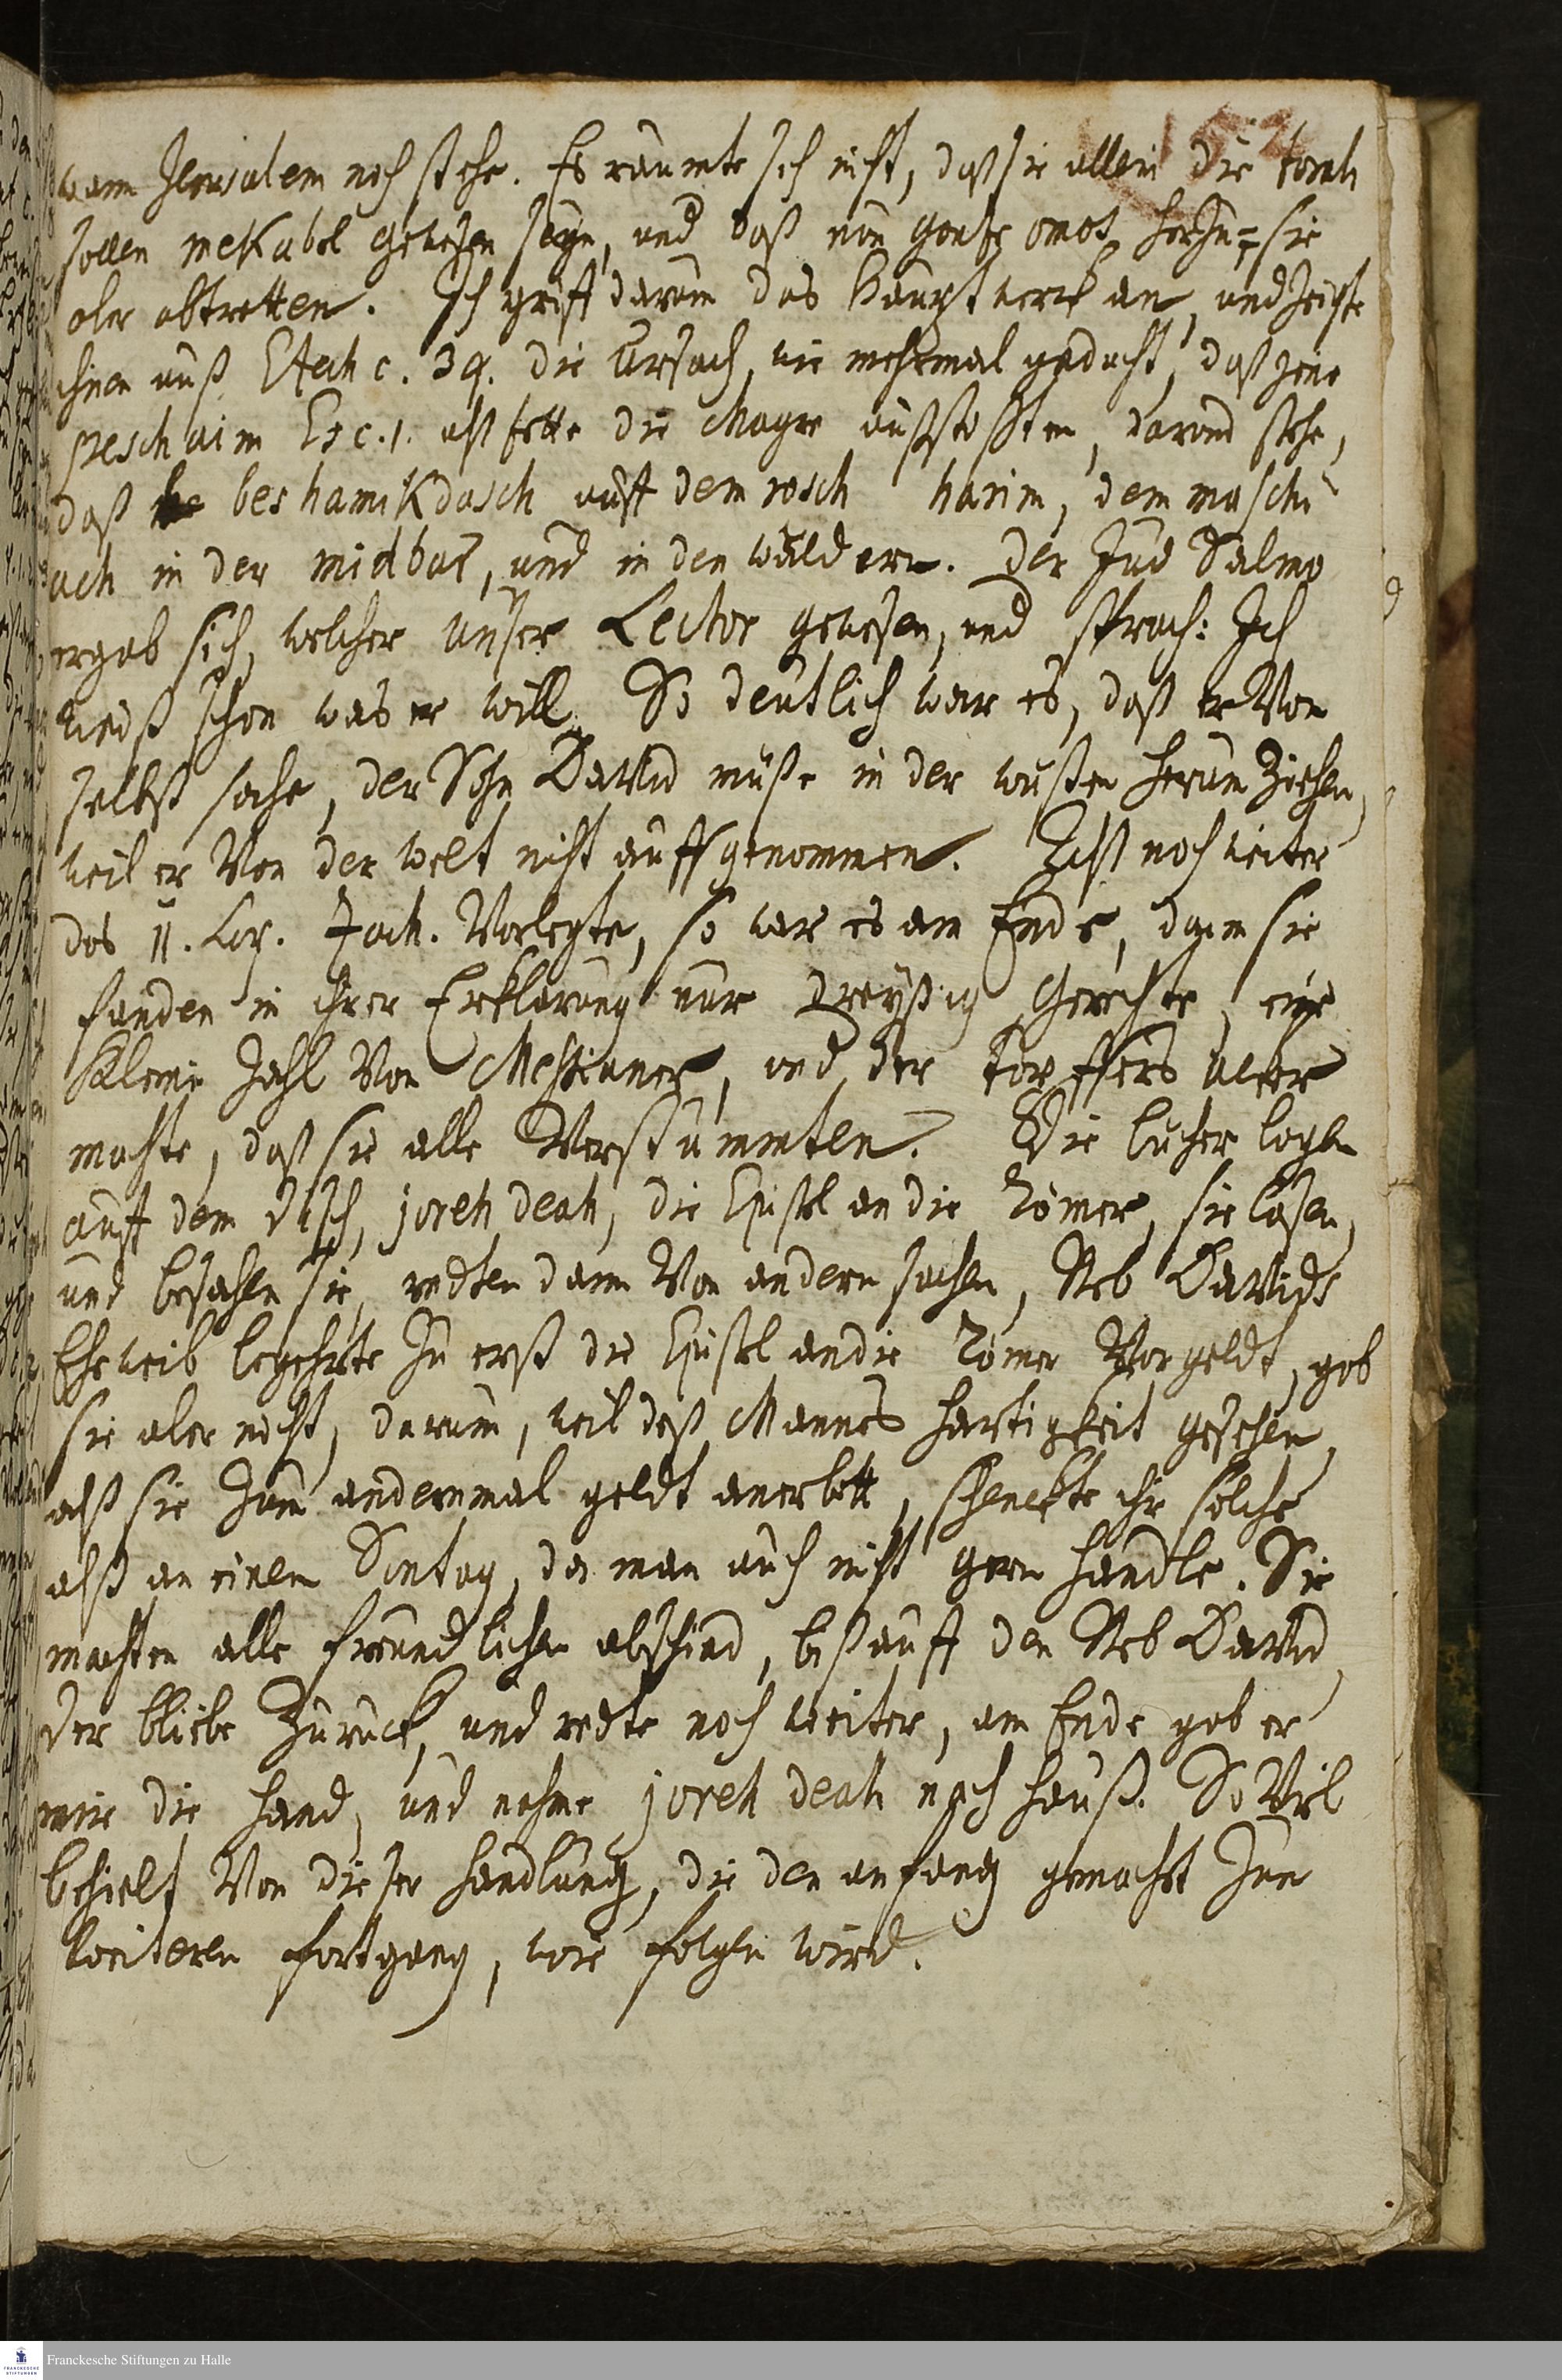 152
wann Jerusalem noch stehe. Es raumte sich nicht, daß sie allein die torah
sollen mekabel gewesen seyn, und daß nun gantze omos herzu= sie
aber abtretten. Ich griff darum das Hauptwerck an, und zeigte
ihnen auß Ezech c. 39. die Ursach, wie mehrmal gedacht, daß jene
peschaim Es c. 1. alß fette die Magre außstoßten, darvon stehe,
daß bes hamikdasch auff dem rosch harim, dem maschi
ach in der midbar, und in den wäldern. Der Jud Salmo
ergab sich, welcher unser Lector gewesen, und sprach: Ich
weiß schon was er will. So deutlich war es, daß er von
selbst sahe, der Sohn David müße in der wüsten herum ziehen,
weil er von der welt nicht auffgenommen. Alß noch weiter
das 11. Cap. Zach. vorlegte, so war es am Ende, dann sie
fanden in ihrer Erklärung nur dreyßig Gerechte, eine
kleine Zahl von Messianer, und der töpffers acker
machte, daß sie alle verstummten. Die bücher lagen
auff dem tisch, joreh deah, die Epistel an die Römer, sie lasen,
und besahen sie, redten dann von andern sachen, Reb Davids
Eheweib begehrte zu erst die Epistel an die Römer vor geldt, gab
sie aber nicht, darum, weil deß Mannes hartigkeit gesehen,
alß sie zum andernmal geldt anerbott, schenckte ihr solche
alß an einem Sontag, da man auch nicht gern handle. Sie
machten alle freundlichen abschied, biß auff den Reb David,
der bliebe zurück, und redte noch weiter, am Ende gab er
mir die hand, und nahme joreh deah nach hauß. So viel
behielt von dieser handlung, die den anfang gemacht zum
weiteren fortgang, wie folgen wird.
Franckesche Stiftungen zu Halle